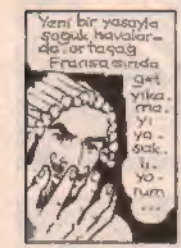 Yeni bir yasayla
soğuk havalar-
da, ortaçağ
Fransasında
yıka-
ma-
yı
ya-
sak-
lı-
yo-
rum
...